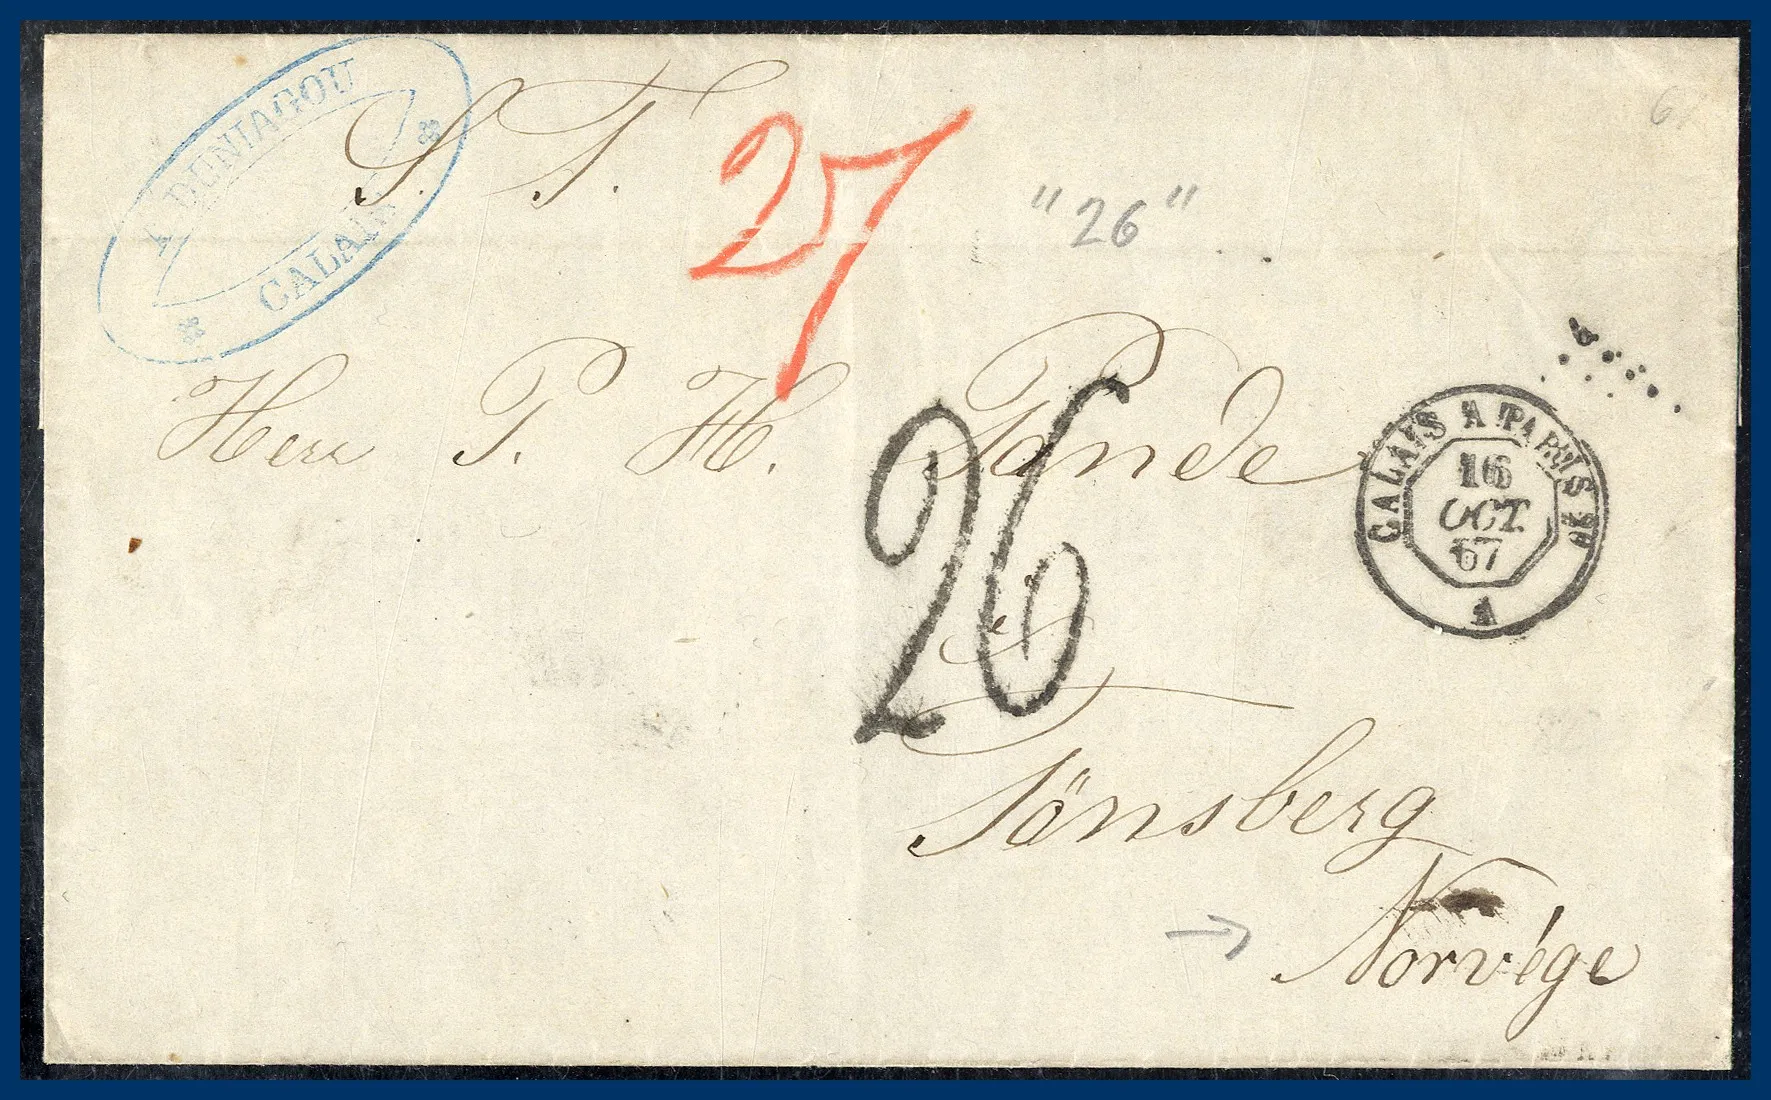 DUNIAGOU
CALAIS
S. T.
27
"26"
Herr P. H. Pande
CALAIS A PARIS
16
OCT.
67
26
Tönsberg
Norvége